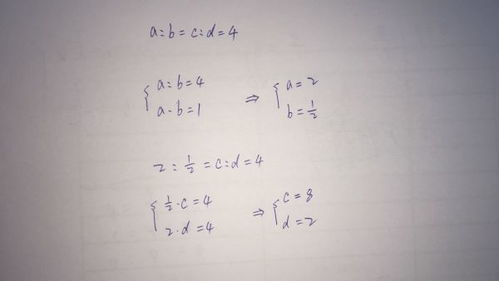 a:b=c:d=4
{ a:b=4
a·b=1 ⇒ { a=2
b=1/2
2:1/2=c:d=4
{ 1/2·c=4
2·d=4 ⇒ { c=8
d=2